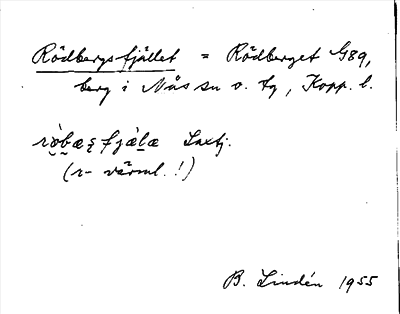 Rödbergsfjället = Rödberget G89,
berg i Nås sn o. tg, Kopp. l.
ròbæʂfjælæ Saxtj.
(r- värml.!)
B. Lindén 1955